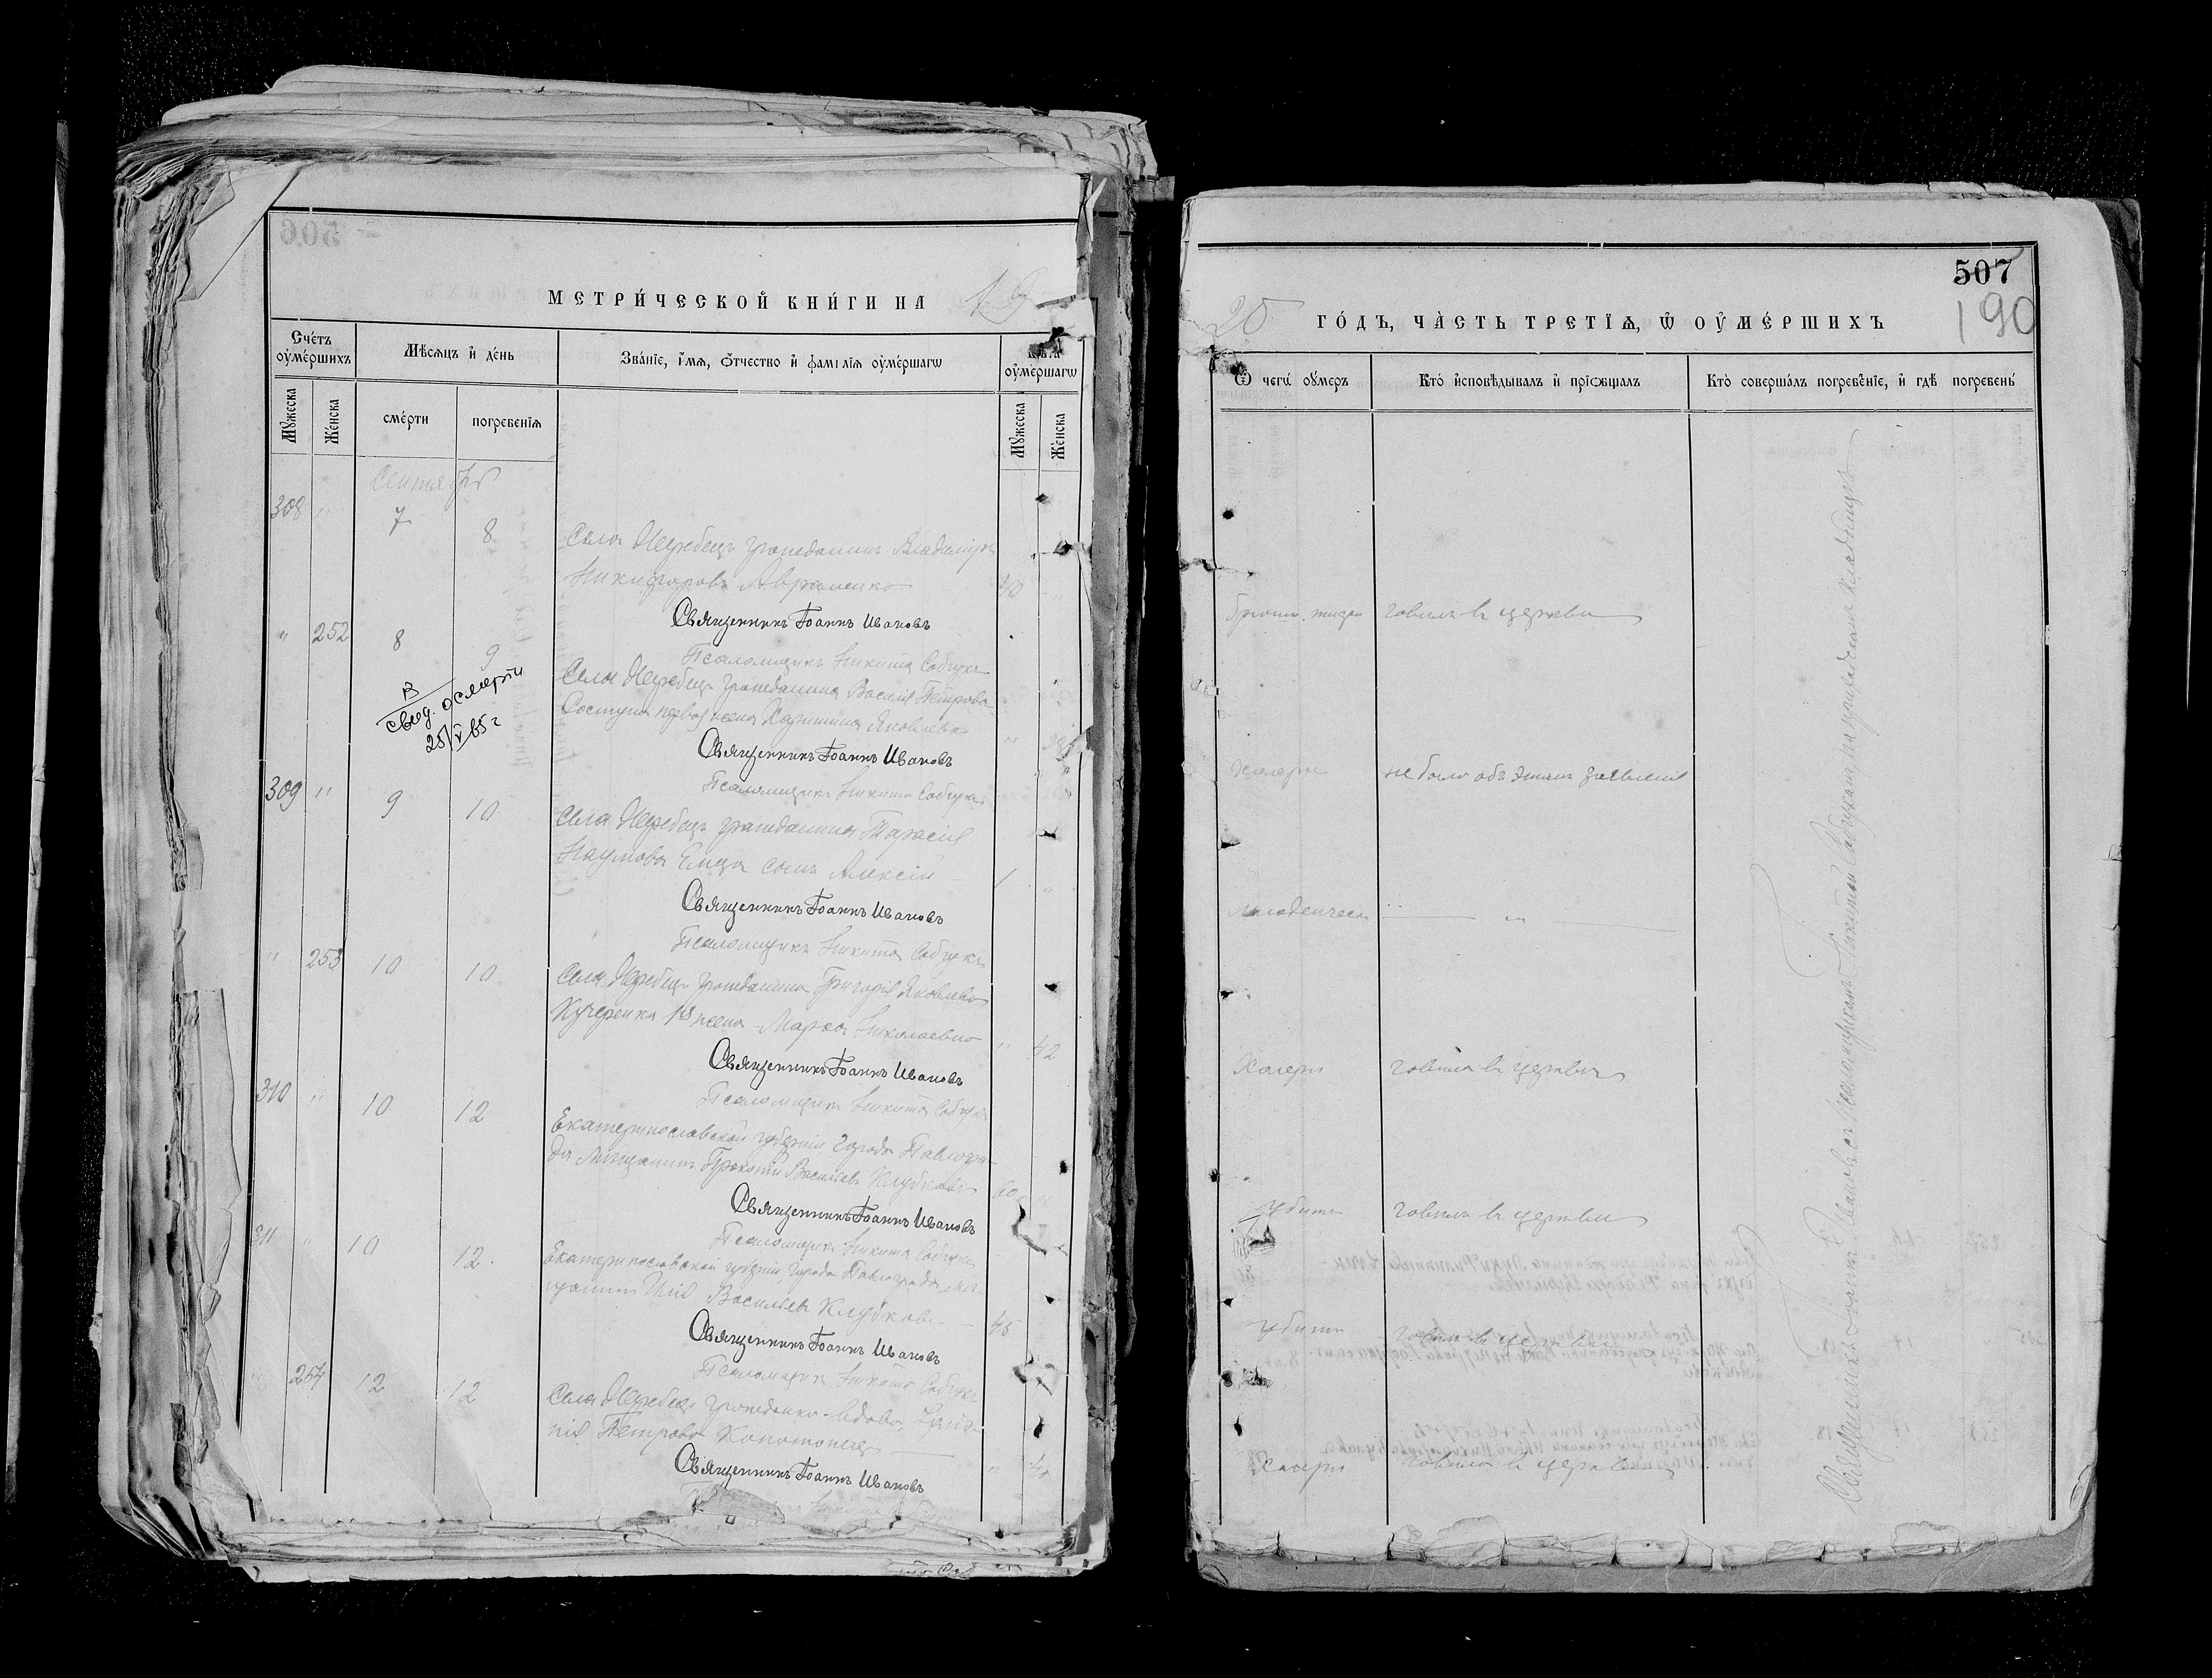 МЕТРИ́ЧЕСКОЙ КНИ́ГИ НА 19
Сче́тъ оу҆ме́ршихъ
Мѣсѧцъ и҆ де́нь
Зва́нїе, и҆́мѧ, ѻ҆́тчество и҆ фамі́лїѧ оу҆ме́ршагѡ
Лѣта оу҆ме́ршагѡ
Мꙋ́жеска
Же́нска
сме́рти
погребе́нїѧ
Мꙋ́жеска
Же́нска
Сентябрь
308 " 7 8
Села Жеребецъ гражданинъ Владиміръ
Никифоровъ Авраменко 40 "
Священникъ Іоаннъ Ивановъ
Псаломщикъ Никита Собчукъ
" 252 8 9
Села Жеребецъ гражданина Василія Петрова
первая жена Яковлева "
в
свид. о смерти
25/V 65 г
Священникъ Іоаннъ Ивановъ
Псаломщикъ Никита Собчукъ
309 " 9 10
Села Жеребецъ гражданина Тарасія
Наумова Емца сынъ Алексій 1 "
Священникъ Іоаннъ Ивановъ
Псаломщикъ Никита Собчукъ
" 253 10 10
Села Жеребецъ гражданина Григорія Яковлева
Кучеренка жена Марѳа Николаевна " 42
Священникъ Іоаннъ Ивановъ
Псаломщикъ Никита Собчукъ
310 " 10 12
Екатеринославской губерніи города Павлогра-
да мѣщанинъ Прокопій Васильевъ Клубковъ 60 "
Священникъ Іоаннъ Ивановъ
Псаломщикъ Никита Собчукъ
311 " 10 12
Екатеринославской губерніи города Павлограда мѣ-
щанинъ Илія Васильевъ Клубковъ 45
Священникъ Іоаннъ Ивановъ
Псаломщикъ Никита Собчукъ
" 254 12 12
Села Жеребецъ гражданка-вдова
Петрова
Священникъ Іоаннъ Ивановъ
507
190
20 ГО́ДЪ, ЧА́СТЬ ТРЕ́ТЇѦ, Ѡ҆ ОУ҆МЕ́РШИХЪ
Ѿ чегѡ̀ оу҆́меръ
Кто̀ и҆сповѣ́дывалъ и҆ прїѡбща́лъ
Кто̀ соверша́лъ погребе́нїе, и҆ гдѣ̀ погребены̀
брюшн. тифа говѣлъ въ церкви
Холеры не было объ этомъ заявленія
младенческ "
Холеры говѣла въ церкви
Убитъ говѣлъ въ церкви
Убитъ говѣлъ въ церкви
Холеры говѣла въ церкви
Священникъ Іоаннъ Ивановъ съ псаломщикомъ Никитой Собчукомъ на приходскомъ кладбищѣ